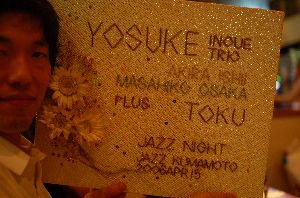 YOSUKE INOUE
TRIO
AKIRA ISHII
MASAHIKO OSAKA
PLUS TOKU
JAZZ NIGHT
JAZZ KUMAMOTO
2006APR15